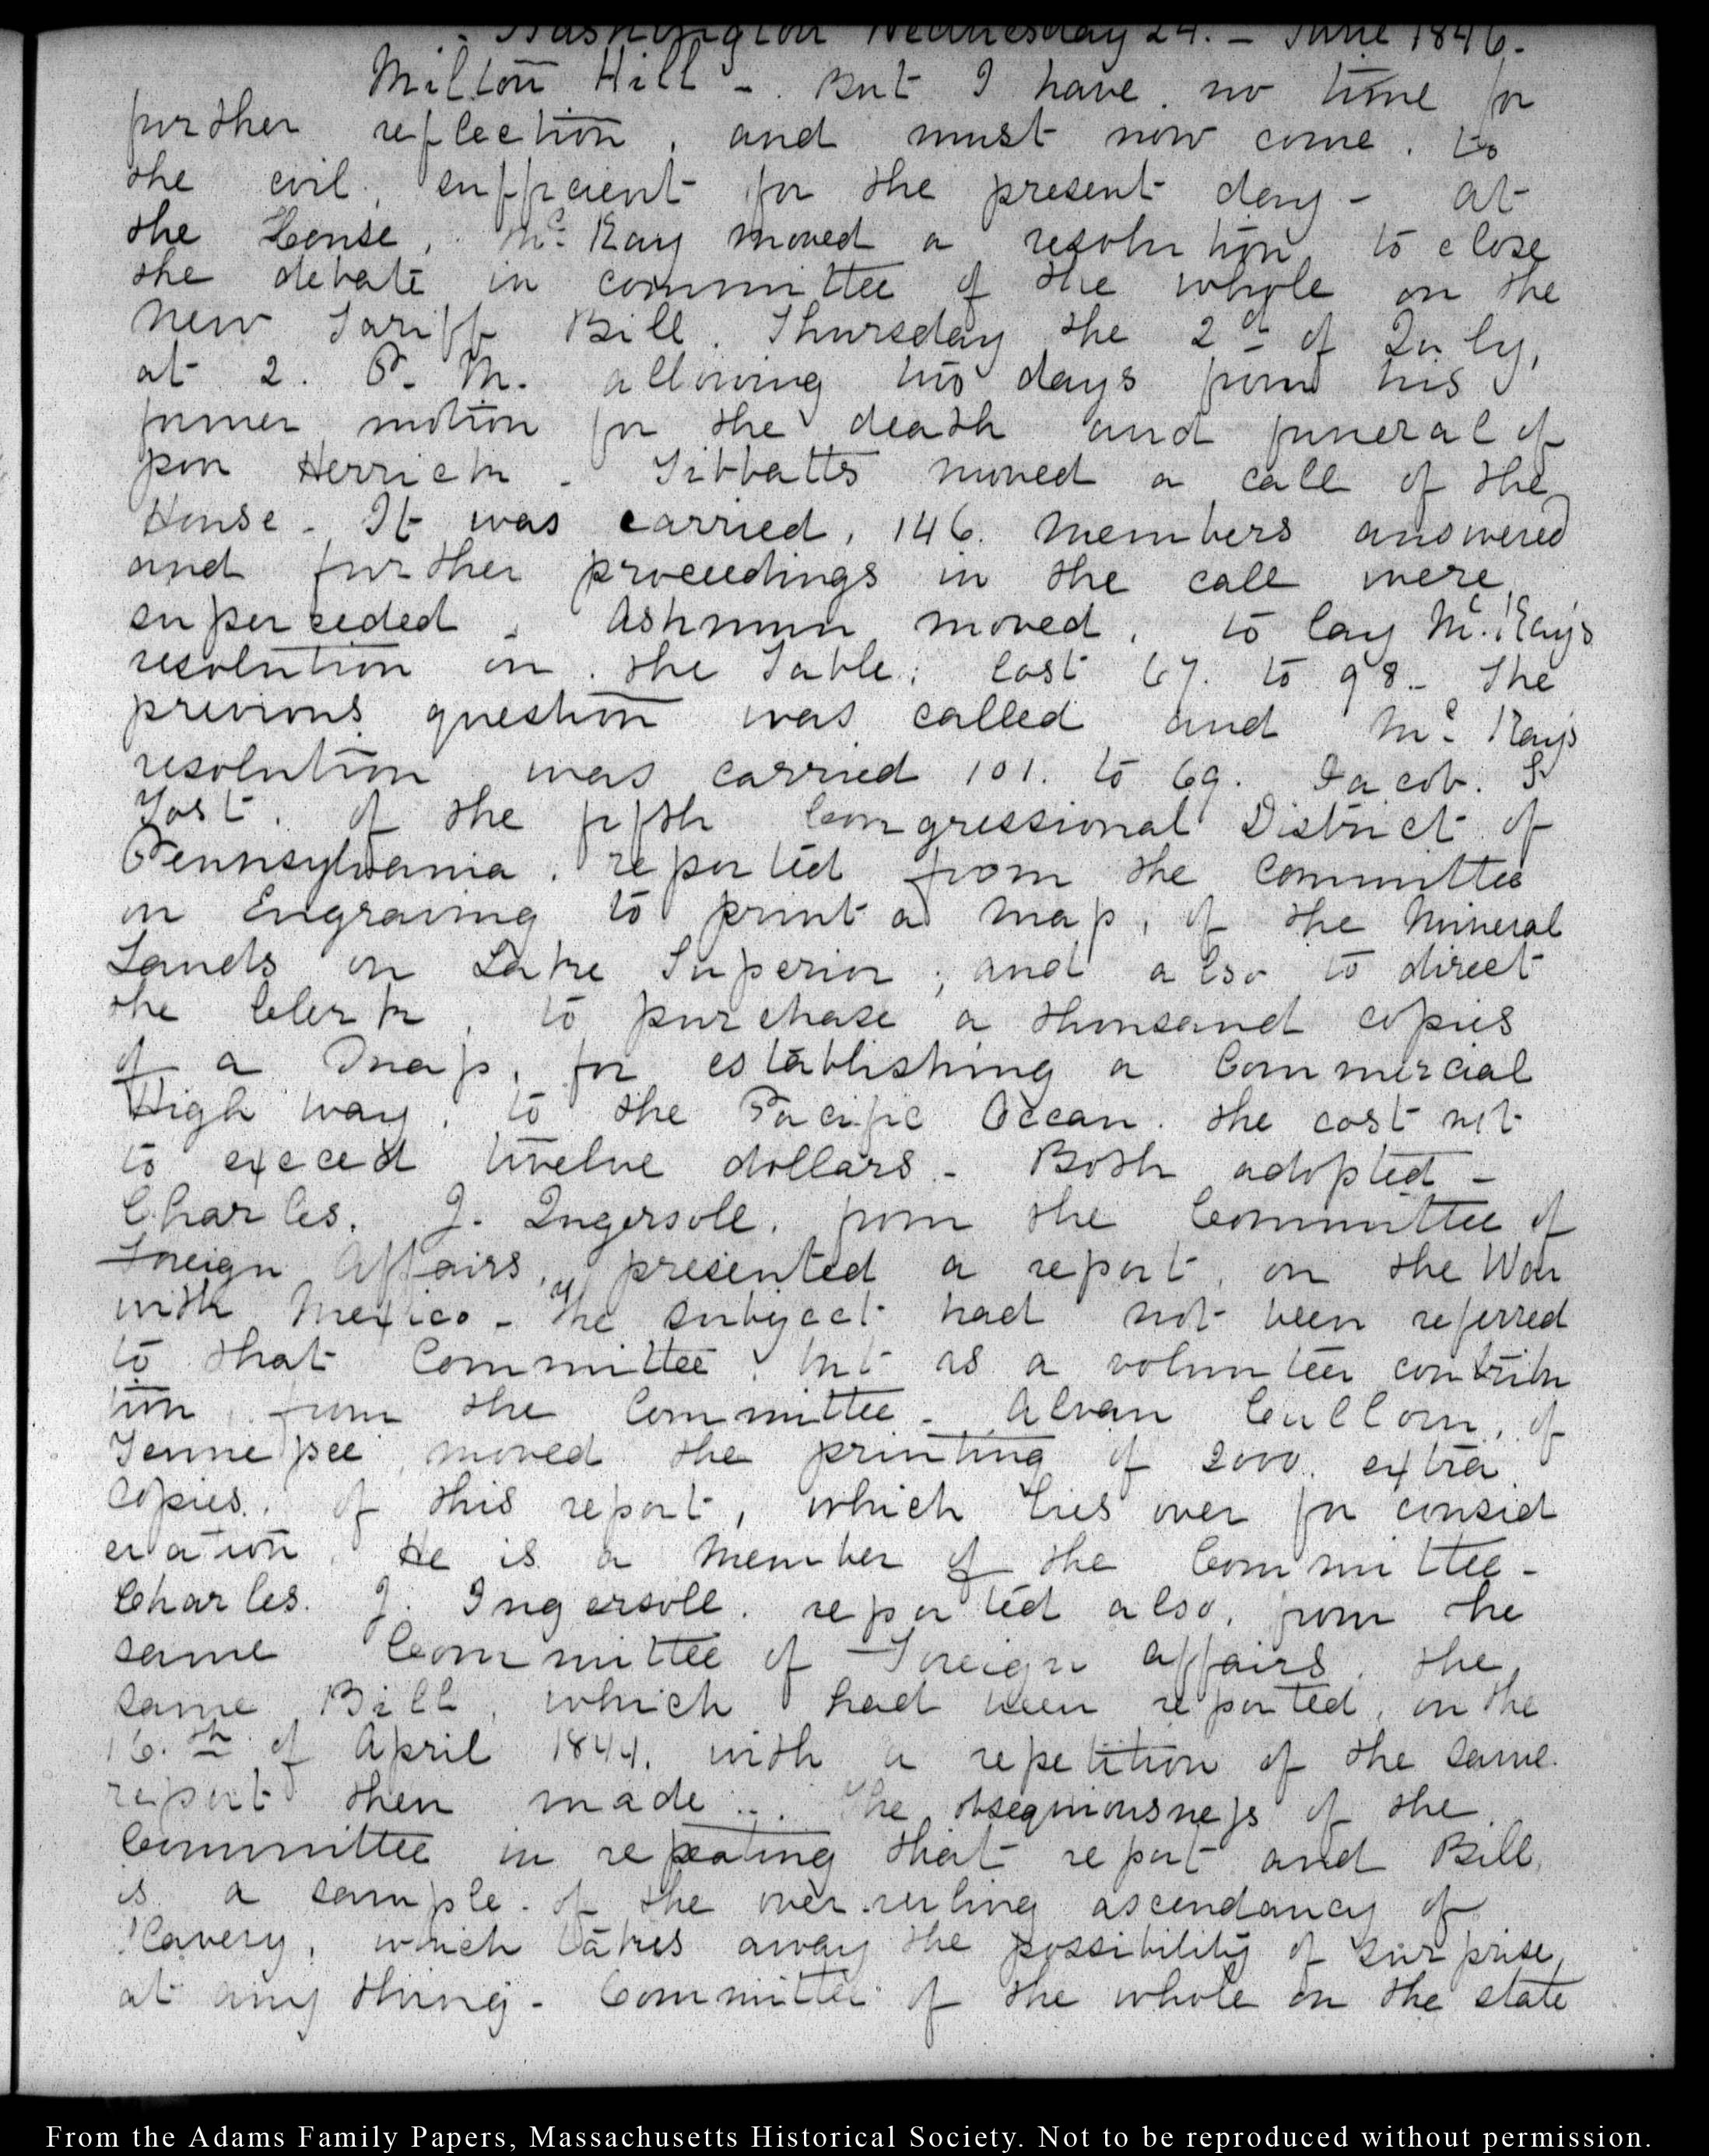 Washington Wednesday 24. – June 1846.
Milton Hill –. But I have no time for
further reflection, and must now come. to
the evil, sufficient for the present day – At
the House, Mc. Kay moved a resolution to close
the debate in committee of the whole on the
new Tariff Bill. Thursday the 2d of July,
at 2. P. M. allowing two days from his
former motion for the death and funeral of
poor Herrick – Tibbatts moved a call of the
House – It was carried, 146. Members answered
and further proceedings in the call were
superceded – Ashmun moved, to lay Mc. Kay's
resolution on the Table: lost 67. to 98 – The
previous question was called and Mc. Kay's
resolution was carried 101. to 69. Jacob. S
Yost, of the fifth Congressional District of
Pennsylvania, reported from the Committee
on Engraving to print a map, of the Mineral
Lands on Lake Superior; and also to direct
the Clerk, to purchase a thousand copies
of a Map, for establishing a Commercial
High way, to the Pacific Ocean. the cost not
to exceed twelve dollars – Both adopted –
Charles. J. Ingersoll. from the Committee of
Foreign Affairs, presented a report, on the War
with Mexico – The subject had not been referred
to that Committee, but as a volunteer contribu
tion, from the Committee – Alvan Cullom, of
Tennessee moved the printing of 2000. extra
Copies. of this report, which lies over for consid
eration He is a Member of the Committee –
Charles. J. Ingersoll. reported also, from the
same Committee of Foreign Affairs, the
same Bill, which had been reported, on the
16.th of April 1844, with a repetition of the same
report then made ... The obsequiousness of the
Committee in repeating that report and Bill,
is a sample of the over-ruling ascendancy of
Slavery, which takes away the possibility of surprise,
at any thing – Committee of the whole on the state
From the Adams Family Papers, Massachusetts Historical Society. Not to be reproduced without permission.